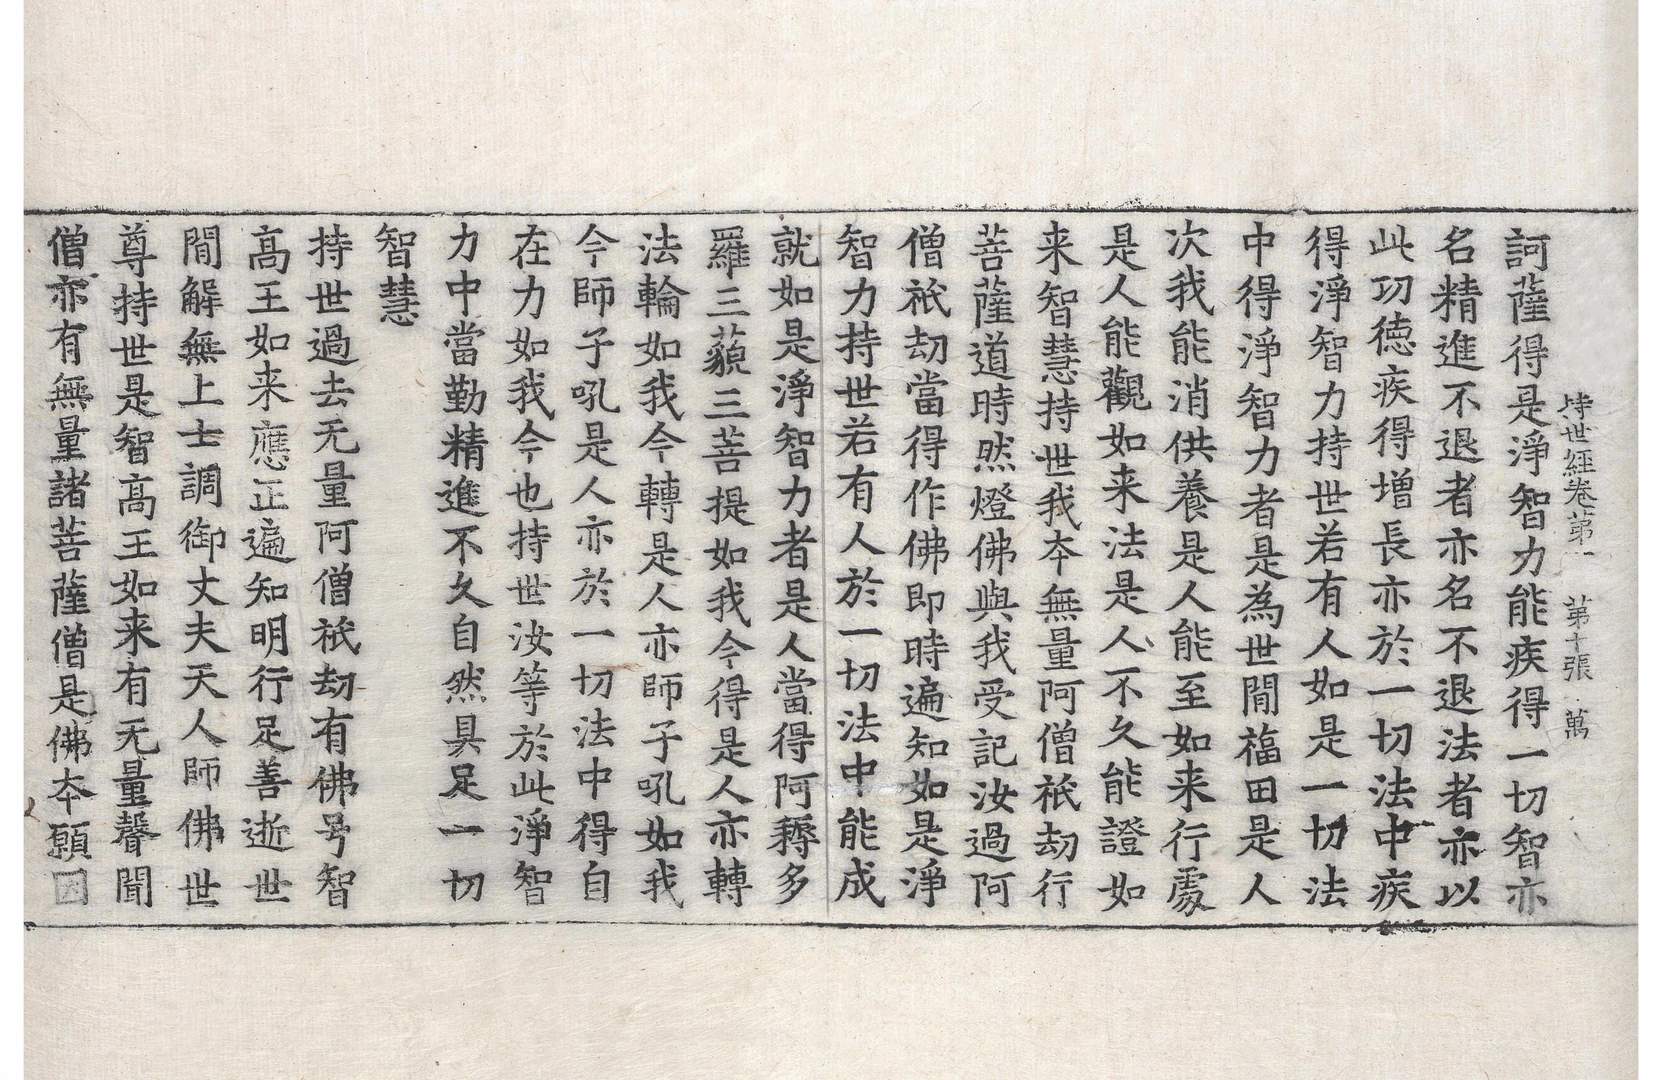 持世經卷第一 第十張 萬
訶薩得是淨智力能疾得一切智亦
名精進不退者亦名不退法者亦以
此功德疾得增長亦於一切法中疾
得淨智力持世若有人如是一切法
中得淨智力者是為世間福田是人
次我能消供養是人能至如来行處
是人能觀如来法是人不久能證如
来智慧持世我夲無量阿僧祇劫行
菩薩道時然燈佛與我受記汝過阿
僧祇劫當得作佛即時遍知如是淨
智力持世若有人於一切法中能成
就如是淨智力者是人當得阿耨多
羅三藐三菩提如我今得是人亦轉
法輪如我今轉是人亦師子吼如我
今師子吼是人亦於一切法中得自
在力如我今也持世汝等於此淨智
力中當勤精進不久自然具足一切
智慧
持世過去无量阿僧祇劫有佛号智
高王如来應正遍知明行足善逝世
間解無上士調御丈夫天人師佛世
尊持世是智高王如来有无量聲聞
僧亦有無量諸菩薩僧是佛夲願因